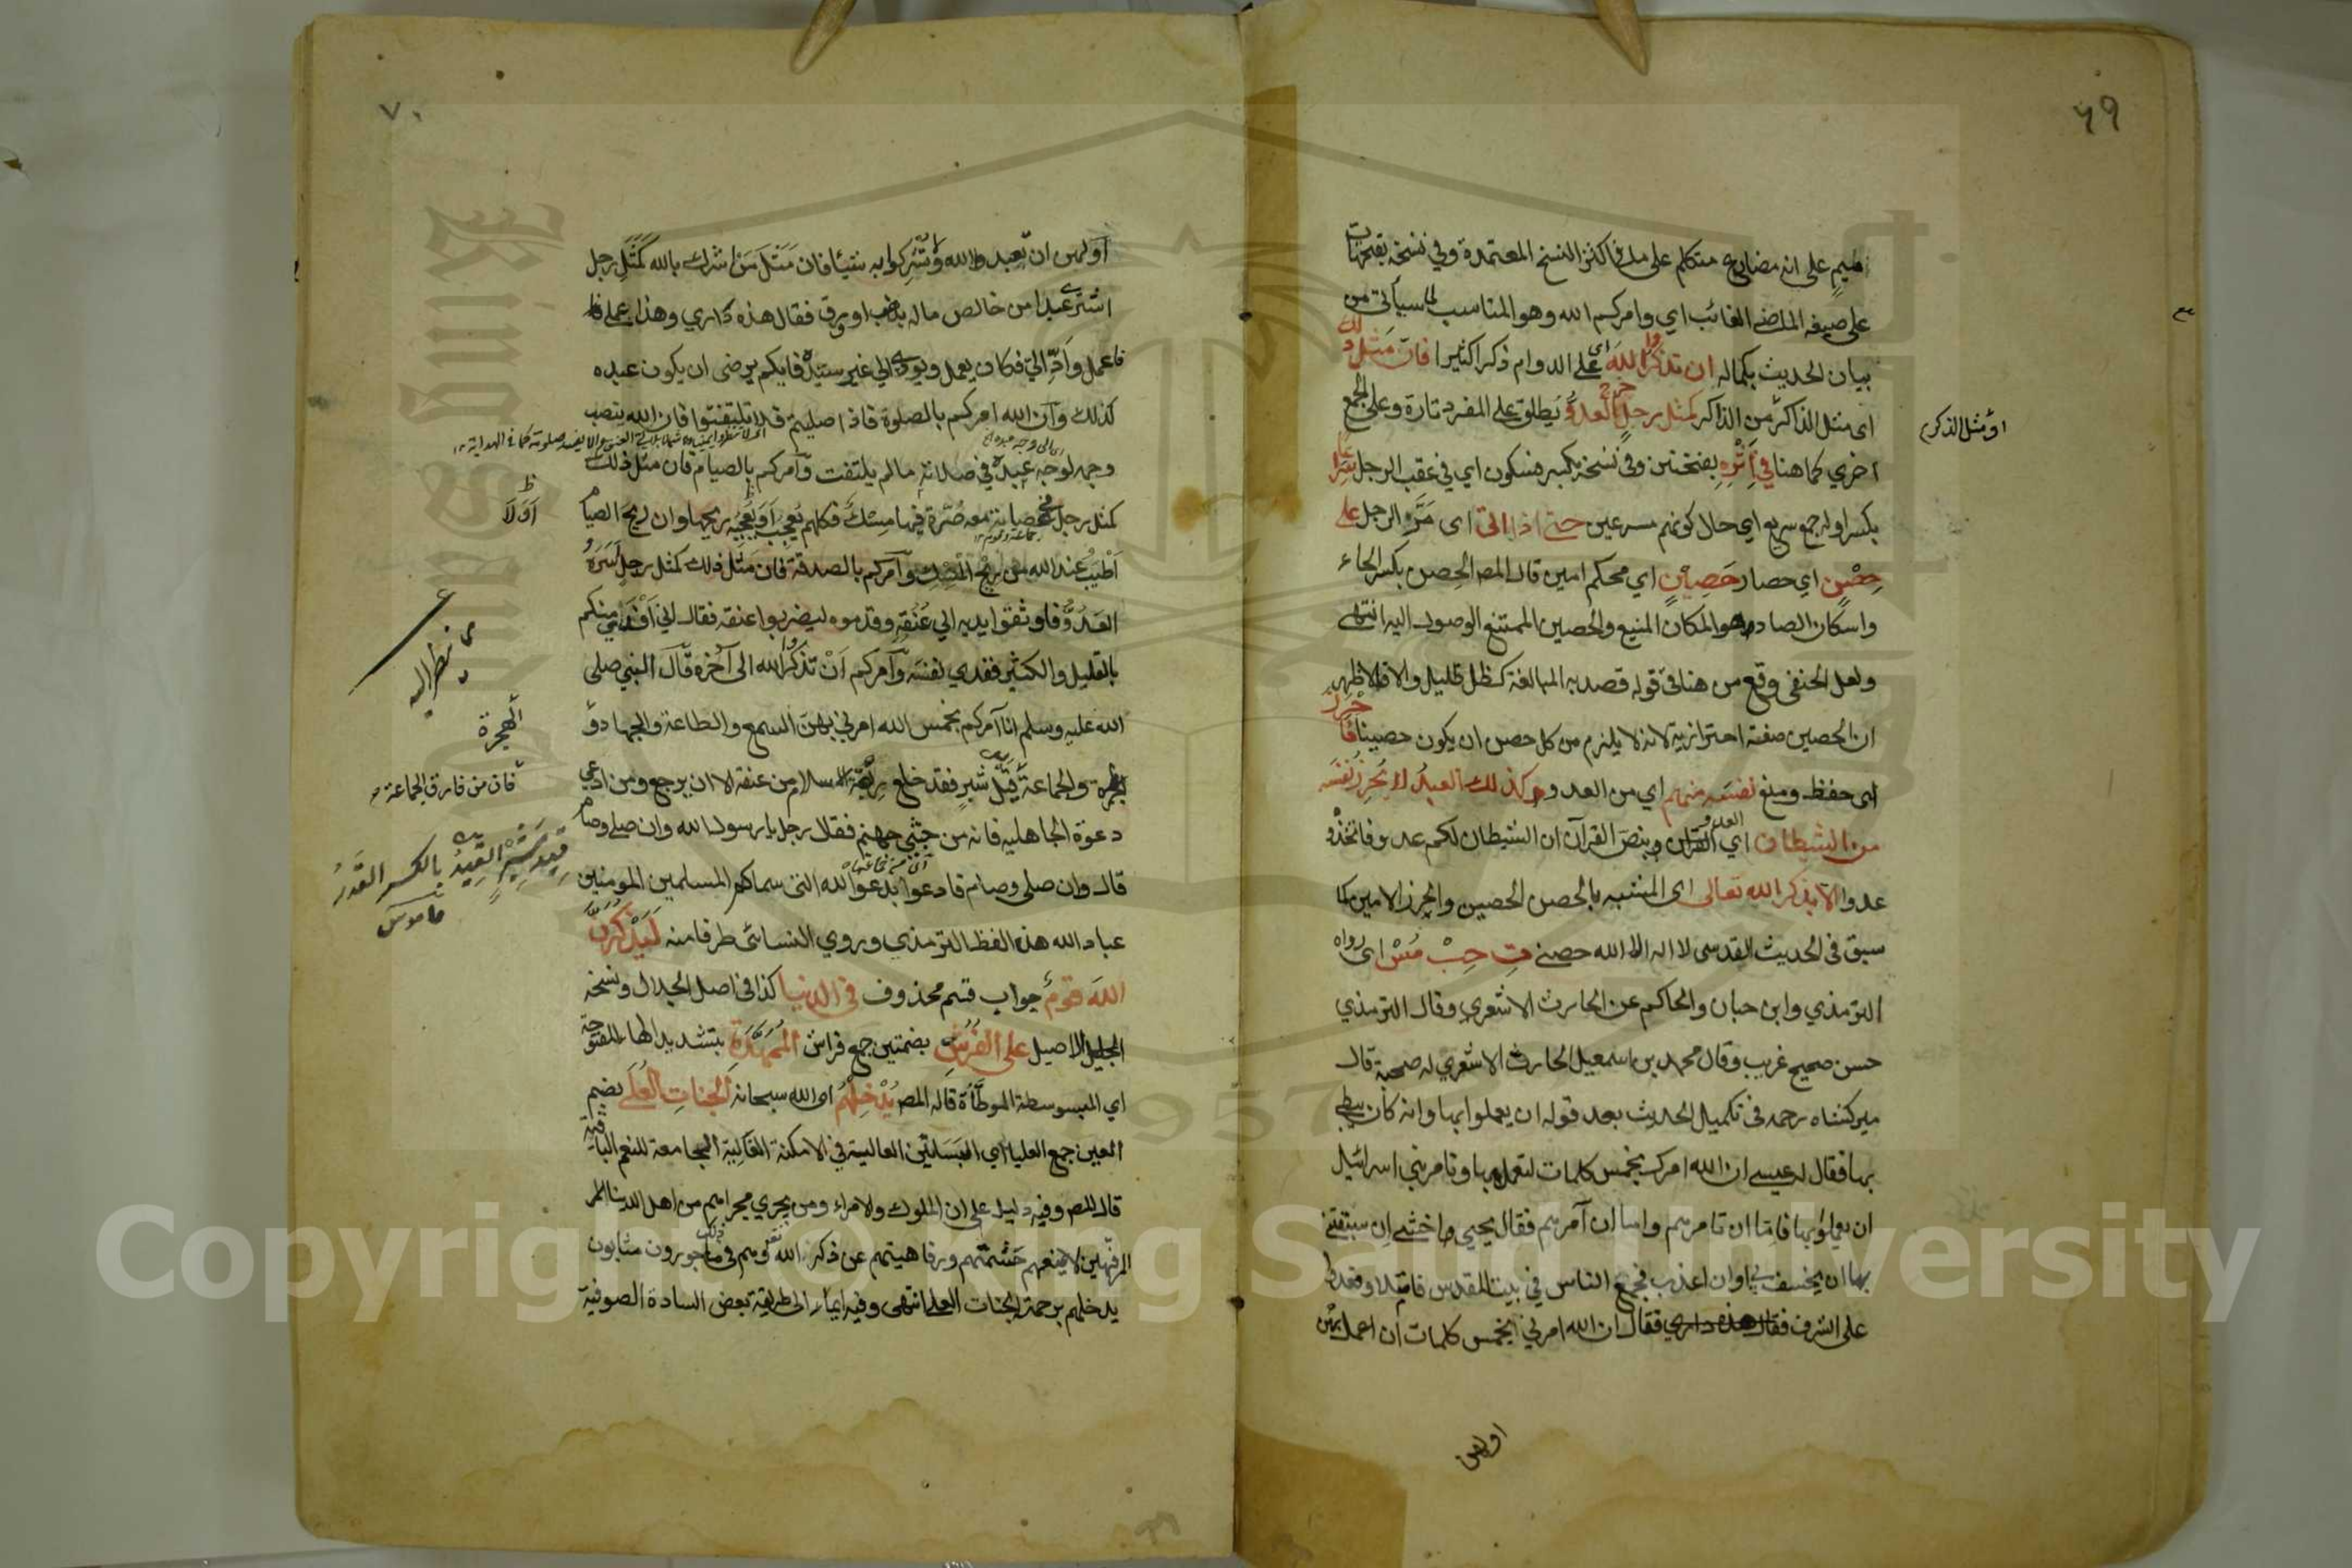 ٦٩
ميم على انه مضارع متكلم على ما في اكثر النسخ المعتمدة وفي نسخة بفتحهات
على صيغة الماضي الغائب اي وامركم الله وهو المناسب لما سيأتي من
بيان الحديث بكماله ان تذكروا الله اي على الدوام ذكرا كثيرا فان مثل ذلك
اى مثل الذاكر من الذاكر كمثل رجل خرج العدو يطلق على المفرد تارة وعلى الجمع
او مثل الذكر
اخرى كما هنا في اثره بفتحتين وفي نسخة بكسر فسكون اي في عقب الرجل سراعا
بكسر اوله جمع سريع اي حال كونهم مسرعين حتى اذا اتى اى مر الرجل على
حصن اي حصار حصين اي محكم امين قال المص الحصن بكسر الحاء
واسكان الصاد هو المكان المنيع والحصين الممتنع الوصول اليه انتهى
ولعل الحنفي وقع من هنا في قوله قصد به المبالغة كظل ظليل والا فالاظهر
ان الحصين صفة احترازية لانه لا يلزم من كل حصن ان يكون حصينا فاحرز
اى حفظ ومنع نفسه منهم اي من العدو وكذلك العبد لا يحرز نفسه
من الشيطان اي العدو وبنص القرآن ان الشيطان لكم عدو فاتخذوه
عدوا الا بذكر الله تعالى اى المشبه بالحصن الحصين والحرز الامين كما
سبق في الحديث القدسى لا اله الا الله حصني ت حب مس اى رواه
الترمذي وابن حبان والحاكم عن الحارث الاشعري وقال الترمذي
حسن صحيح غريب وقال محمد بن اسمعيل الحارث الاشعري له صحبة قال
ميركشاه رحمه في تكميل الحديث بعد قوله ان يعملوا بها وانه كاد ان يبطي
بها فقال له عيسى ان الله امرك بخمس كلمات لتعمل بها وتامر بني اسرائيل
ان يعملوا بها فاما ان تامرهم واما ان آمرهم فقال يحيى اخشى ان سبقتني
بها ان يخسف بي او ان اعذب فجمع الناس في بيت المقدس فامتلا وقعدوا
على الشرف فقال ان الله امرني بخمس كلمات ان اعمل بهن
اولهن
٧٠
اولهن ان تعبدوا الله ولا تشركوا به شيئا فان مثل من اشرك بالله كمثل رجل
اشترى عبدا من خالص ماله بذهب او ورق فقال هذه داري وهذا عملي
فاعمل واد الي فكان يعمل ويودي الى غير سيده فايكم يرضى ان يكون عبده
كذلك وان الله امركم بالصلوة فاذا صليتم فلا تلتفتوا فان الله ينصب
وجهه لوجه عبده في صلاته مالم يلتفت وآمركم بالصيام فان مثل ذلك
كمثل رجل في عصابة معه صرة فيها مسك فكلهم يعجب او يعجبه ريحها وان ريح الصيام
اطيب عند الله من ريح المسك وآمركم بالصدقة فان مثل ذلك كمثل رجل اسره
العدو فاوثقوا يديه الى عنقه وقدموه ليضربوا عنقه فقال اني افتدي منكم
بالقليل والكثير ففدي نفسه وآمركم ان تذكروا الله الى آخره قال النبي صلى
الله عليه وسلم انا آمركم بخمس الله امرني بهن السمع والطاعة والجهاد و
الهجرة والجماعة قيد شبر فقد خلع ربقة الاسلام من عنقه الا ان يرجع ومن ادعى
دعوة الجاهلية فانه من جثي جهنم فقال رجل يا رسول الله وان صلى وصام
قال وان صلى وصام فادعوا بدعوا الله التي سماكم المسلمين المومنين
عباد الله هذه الفظ الترمذي وروي النسائي طرفا منه ليذكرن
الله قوم جواب قسم محذوف في الدنيا كذا في اصل الجلال ونسخة
الجليل الاصيل على الفرش بضمتين جمع فراش الممهدة بتشديد الهاء المفتوحة
اي المبسوسطة الموطأة قاله المص يدخلهم اى الله سبحانه الجنات العلى بضم
العين جمع العليا اي البساتين العالية في الامكنة الجامعة للنعم الباقية
قال المص وفيه دليل على ان الملوك والامراء ومن يجري مجراهم من اهل الدنيا
المرفهين لا يمنعهم حشمتهم ورفاهيتهم عن ذكر الله تعه وهم في ذلك ماجورون مثابون
يدخلهم برحمته الجنات العلى انتهى وفيه ايماء الى طريقة بعض السادة الصوفية
اولا
ينظر اليه
الهجرة
فان من فارق الجماعة
قيد شبر القيد بالكسر القدر
قاموس
Copyright © King Saud University
1957